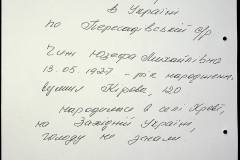 в Україні
по Пересадівській с/р
Чиж Юзефа Михайлівна
13.05.1927 – рік народження
вулиця Кірова, 120
народилися в селі
на Західній Україні,
голоду не знали,